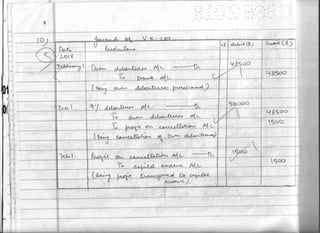 10)
Journal of V.K. Ltd.
Date Particulars lf debit(₹) Credit(₹)
2018
February 1 Own debentures A/c — Dr 48500
To bank A/c 48500
(being own debentures purchased)
Feb 1. 9% debentures A/c — Dr 50000
To own debentures A/c 48500
To profit on cancellation A/c 1500
(being cancellation of own debentures)
Feb 1. Profit on cancellation A/c — Dr 1500
To capital reserve A/c 1500
(Being profit transferred to capital
reserve).